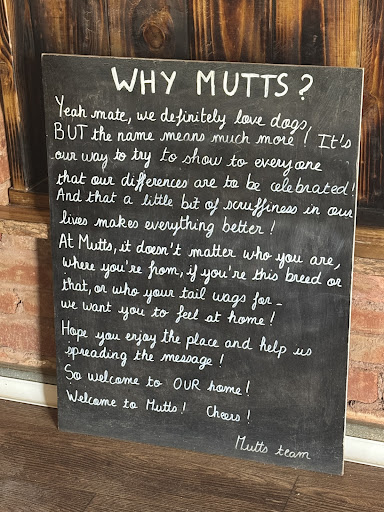 WHY MUTTS?
Yeah mate, we definitely love dogs,
BUT the name means much more! It's
our way to try to show to everyone
that our differences are to be celebrated!
And that a little bit of scruffiness in our
lives makes everything better!
At Mutts, it doesn't matter who you are,
where you're from, if you're this breed or
that, or who your tail wags for_
we want you to feel at home!
Hope you enjoy the place and help us
spreading the message!
So welcome to OUR home!
Welcome to Mutts! Cheers!
Mutts team